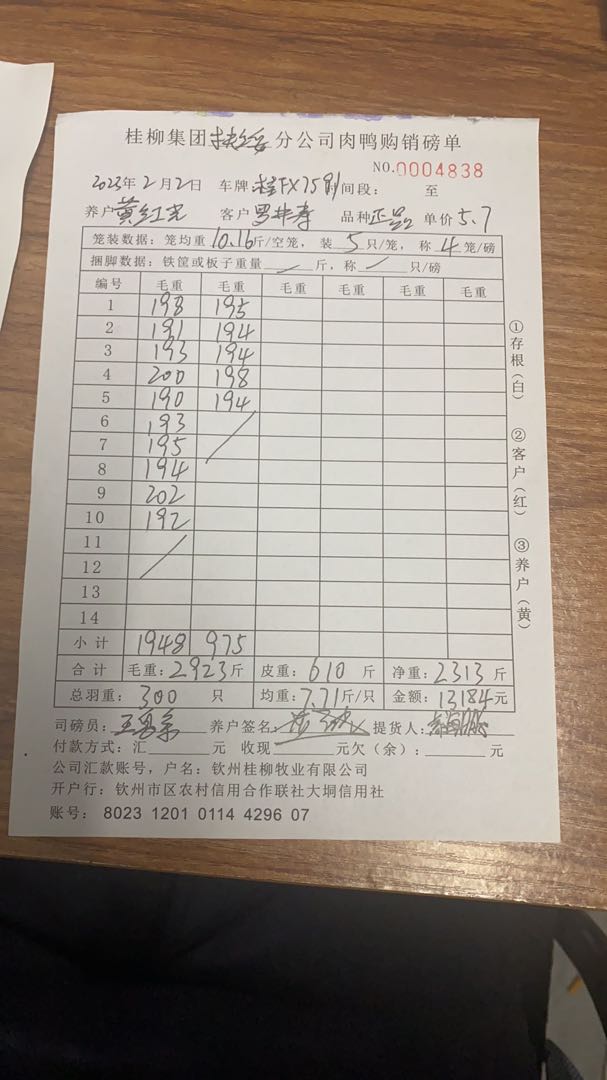 桂柳集团扶绥分公司肉鸭购销磅单
NO.0004838
2023年2月2日 车牌 桂FX7591 时间段: 至
养户 黄红光 客户 罗 寿 品种 正品 单价 5.7
笼装数据: 笼均重 10.16 斤/空笼, 装 5 只/笼, 称 4 笼/磅
捆脚数据: 铁筐或板子重量 斤, 称 只/磅
编号 毛重 毛重 毛重 毛重 毛重 毛重
1 198 195
2 191 194
3 193 194
4 200 198
5 190 194
6 193
7 195
8 194
9 202
10 192
11
12
13
14
小计 1948 975
合计 毛重: 2923 斤 皮重: 610 斤 净重: 2313 斤
总羽重: 300 只 均重: 7.71 斤/只 金额: 13184 元
司磅员: 养户签名: 提货人:
付款方式: 汇 元 收现 元欠(余): 元
公司汇款账号, 户名: 钦州桂柳牧业有限公司
开户行: 钦州市区农村信用合作联社大垌信用社
账号: 8023 1201 0114 4296 07
①存根(白)
②客户(红)
③养户(黄)